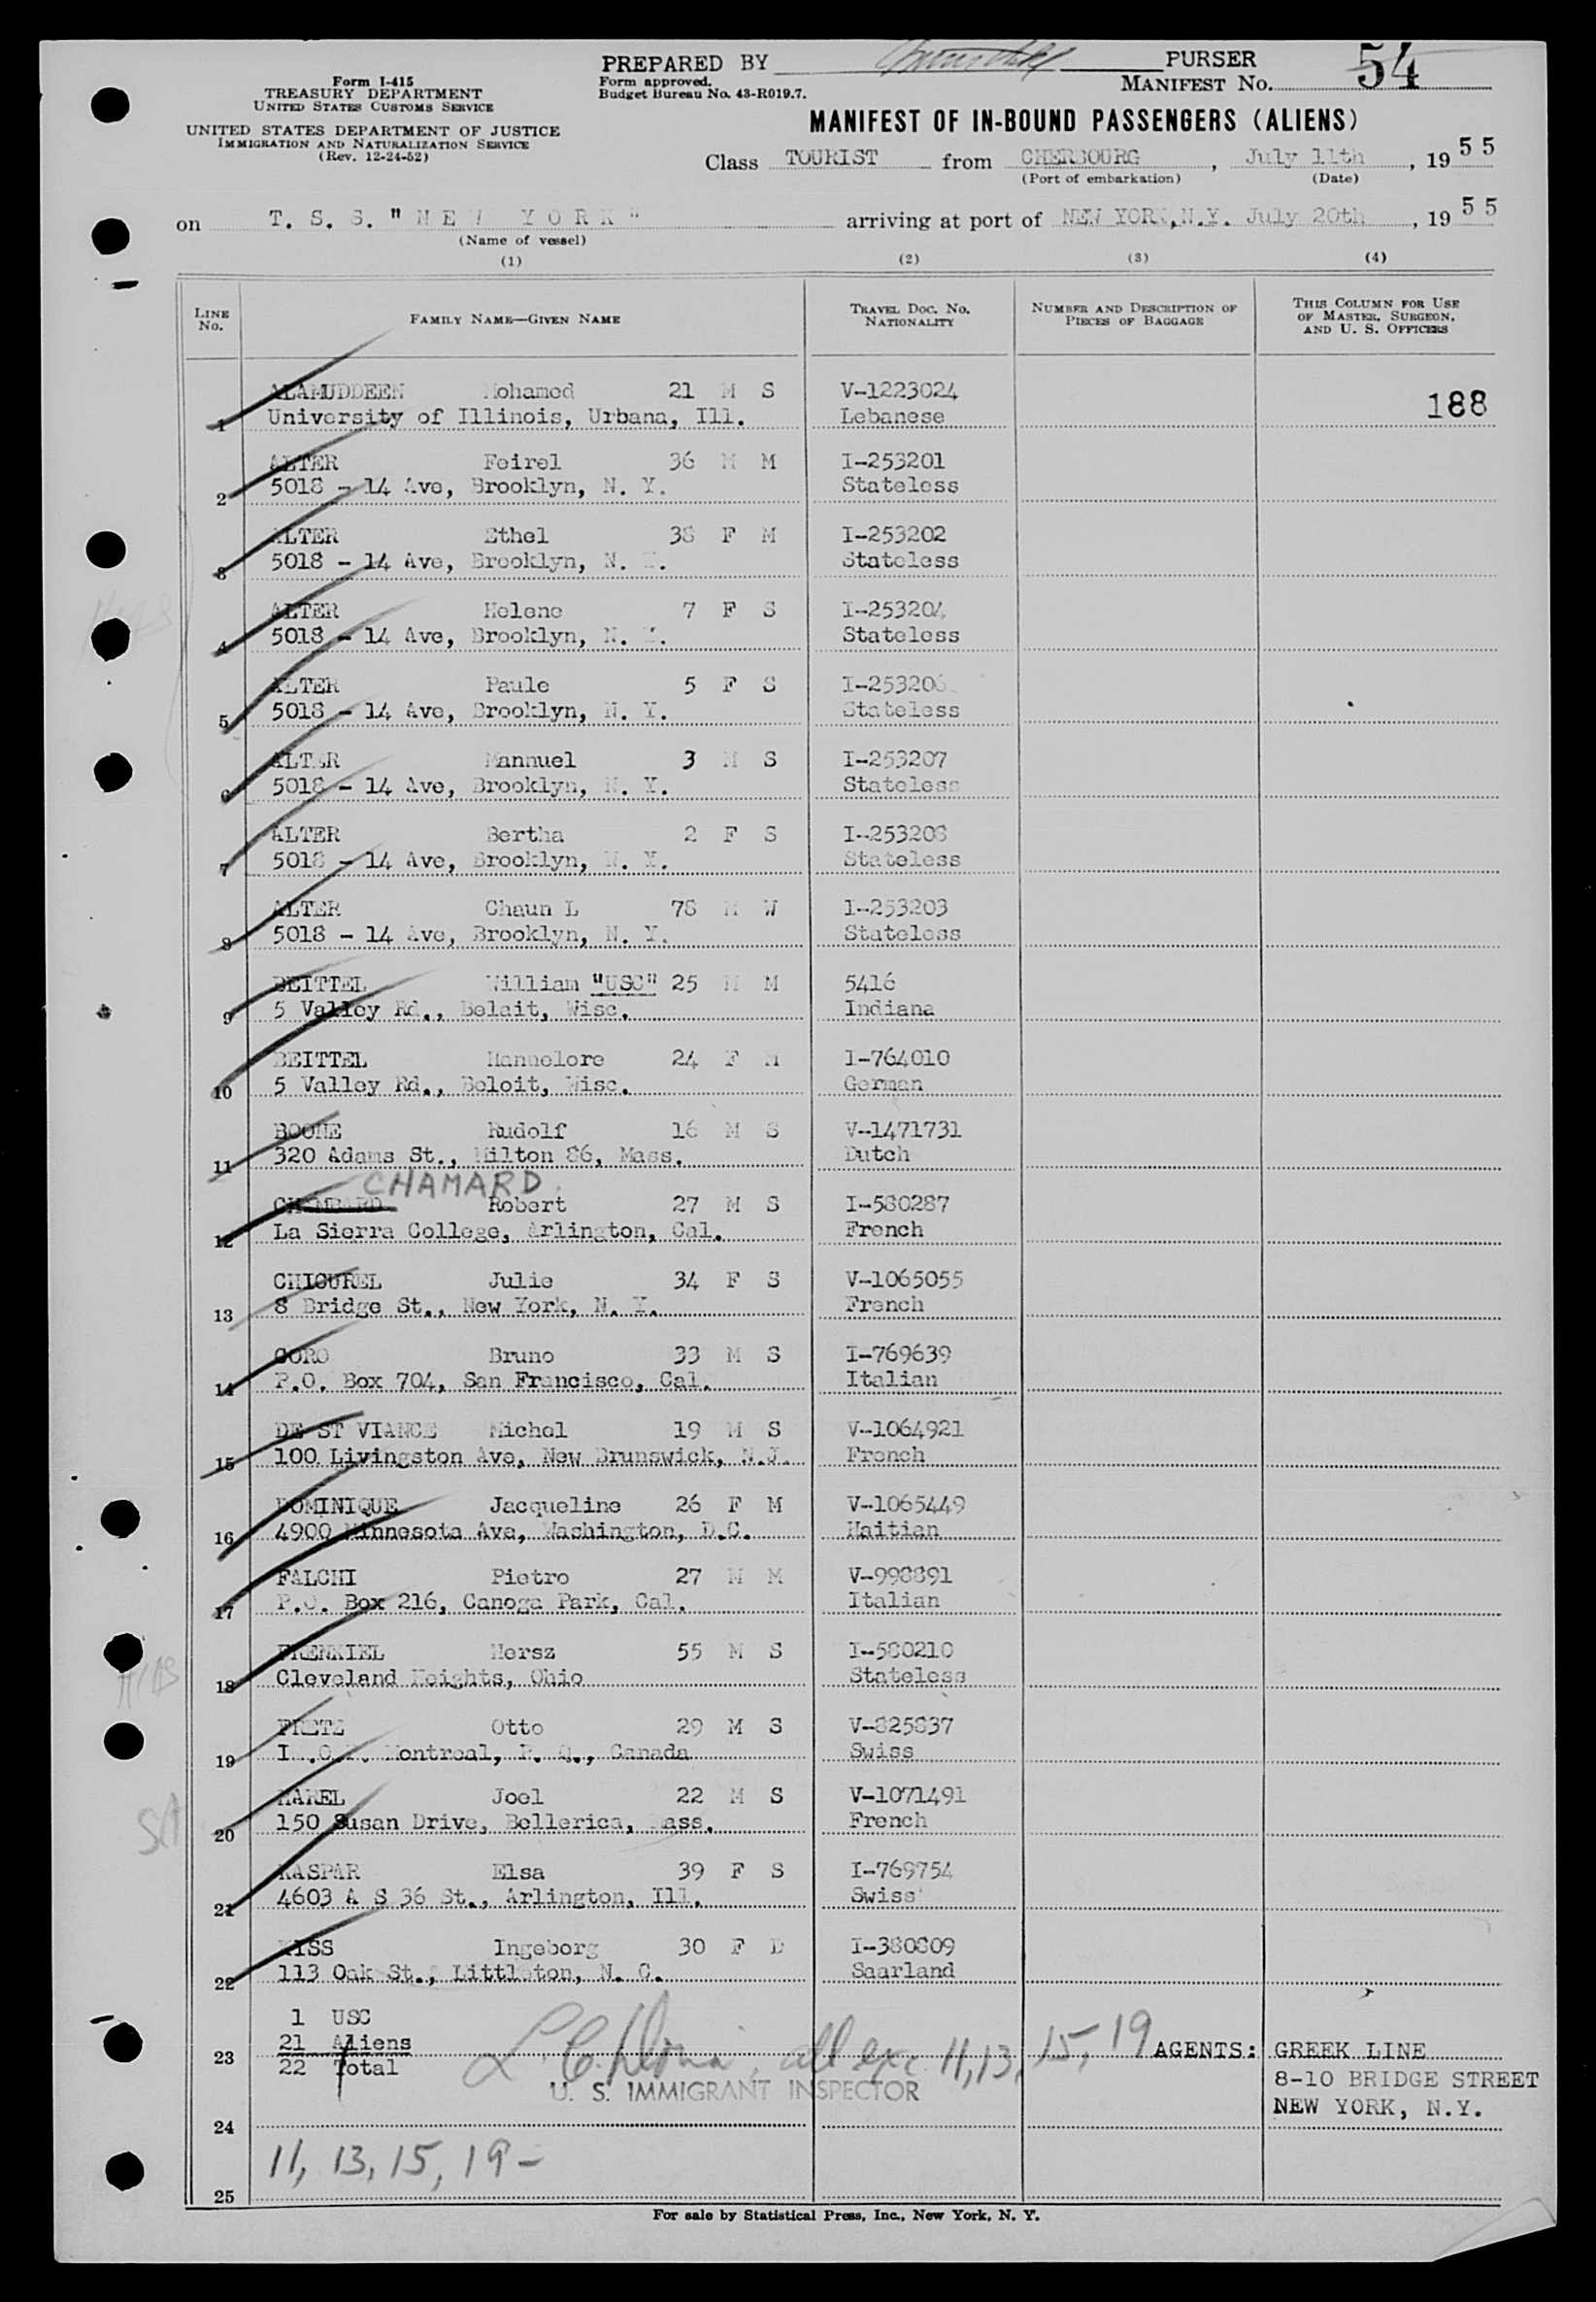 PREPARED BY PURSER
Form I-415
TREASURY DEPARTMENT
UNITED STATES CUSTOMS SERVICE
UNITED STATES DEPARTMENT OF JUSTICE
IMMIGRATION AND NATURALIZATION SERVICE
(Rev. 12-24-52)
Form approved.
Budget Bureau No. 43-R019.7.
MANIFEST No. 54
MANIFEST OF IN-BOUND PASSENGERS (ALIENS)
Class TOURIST from CHERBOURG, July 11th, 1955
(Port of embarkation) (Date)
on T. S. S. "NEW YORK" arriving at port of NEW YORK, N.Y. July 20th, 1955
(Name of vessel)
(1) (2) (3) (4)
LINE No. FAMILY NAME—GIVEN NAME TRAVEL DOC. NO. NATIONALITY NUMBER AND DESCRIPTION OF PIECES OF BAGGAGE THIS COLUMN FOR USE OF MASTER, SURGEON, AND U. S. OFFICERS
ALAMUDDEEN Mohamed 21 M S V-1223024 188
1 University of Illinois, Urbana, Ill. Lebanese
ALTER Feirel 36 M M I-253201
2 5018 - 14 Ave, Brooklyn, N. Y. Stateless
ALTER Ethel 38 F M I-253202
3 5018 - 14 Ave, Brooklyn, N. Y. Stateless
ALTER Helene 7 F S I-253204
4 5018 - 14 Ave, Brooklyn, N. Y. Stateless
ALTER Paule 5 F S I-253206
5 5018 - 14 Ave, Brooklyn, N. Y. Stateless
ALTER Mannuel 3 M S I-253207
6 5018 - 14 Ave, Brooklyn, N. Y. Stateless
ALTER Bertha 2 F S I-253208
7 5018 - 14 Ave, Brooklyn, N. Y. Stateless
ALTER Chaun L 78 M W I-253203
8 5018 - 14 Ave, Brooklyn, N. Y. Stateless
BEITTEL William "USC" 25 M M 5416
9 5 Valley Rd., Beloit, Wisc. Indiana
BEITTEL Hannelore 24 F M I-764010
10 5 Valley Rd., Beloit, Wisc. German
BOOME Rudolf 16 M S V-1471731
11 320 Adams St., Milton 86, Mass. Dutch
CHAMARD
CHAMBARD Robert 27 M S I-580287
12 La Sierra College, Arlington, Cal. French
CHICUREL Julie 34 F S V-1065055
13 8 Bridge St., New York, N. Y. French
CORO Bruno 33 M S I-769639
14 P.O. Box 704, San Francisco, Cal. Italian
DE ST VIANCE Michel 19 M S V-1064921
15 100 Livingston Ave, New Brunswick, N.J. French
DOMINIQUE Jacqueline 26 F M V-1065449
16 4900 Minnesota Ave, Washington, D.C. Haitian
FALCHI Pietro 27 M M V-998891
17 P.O. Box 216, Canoga Park, Cal. Italian
FRENKIEL Hersz 55 M S I-580210
18 Cleveland Heights, Ohio Stateless
FRETZ Otto 29 M S V-825837
19 Montreal, P. Q., Canada Swiss
KAREL Joel 22 M S V-1071491
20 150 Susan Drive, Bellerica, Mass. French
KASPAR Elsa 39 F S I-769754
21 4603 A S 36 St., Arlington, Ill. Swiss
KISS Ingeborg 30 F D I-380809
22 113 Oak St., Littleton, N. C. Saarland
1 USC
21 Aliens
23 all exc 11, 13, 15, 19 AGENTS: GREEK LINE
22 Total
U. S. IMMIGRANT INSPECTOR 8-10 BRIDGE STREET
NEW YORK, N.Y.
24
11, 13, 15, 19 -
25
For sale by Statistical Press, Inc., New York, N. Y.